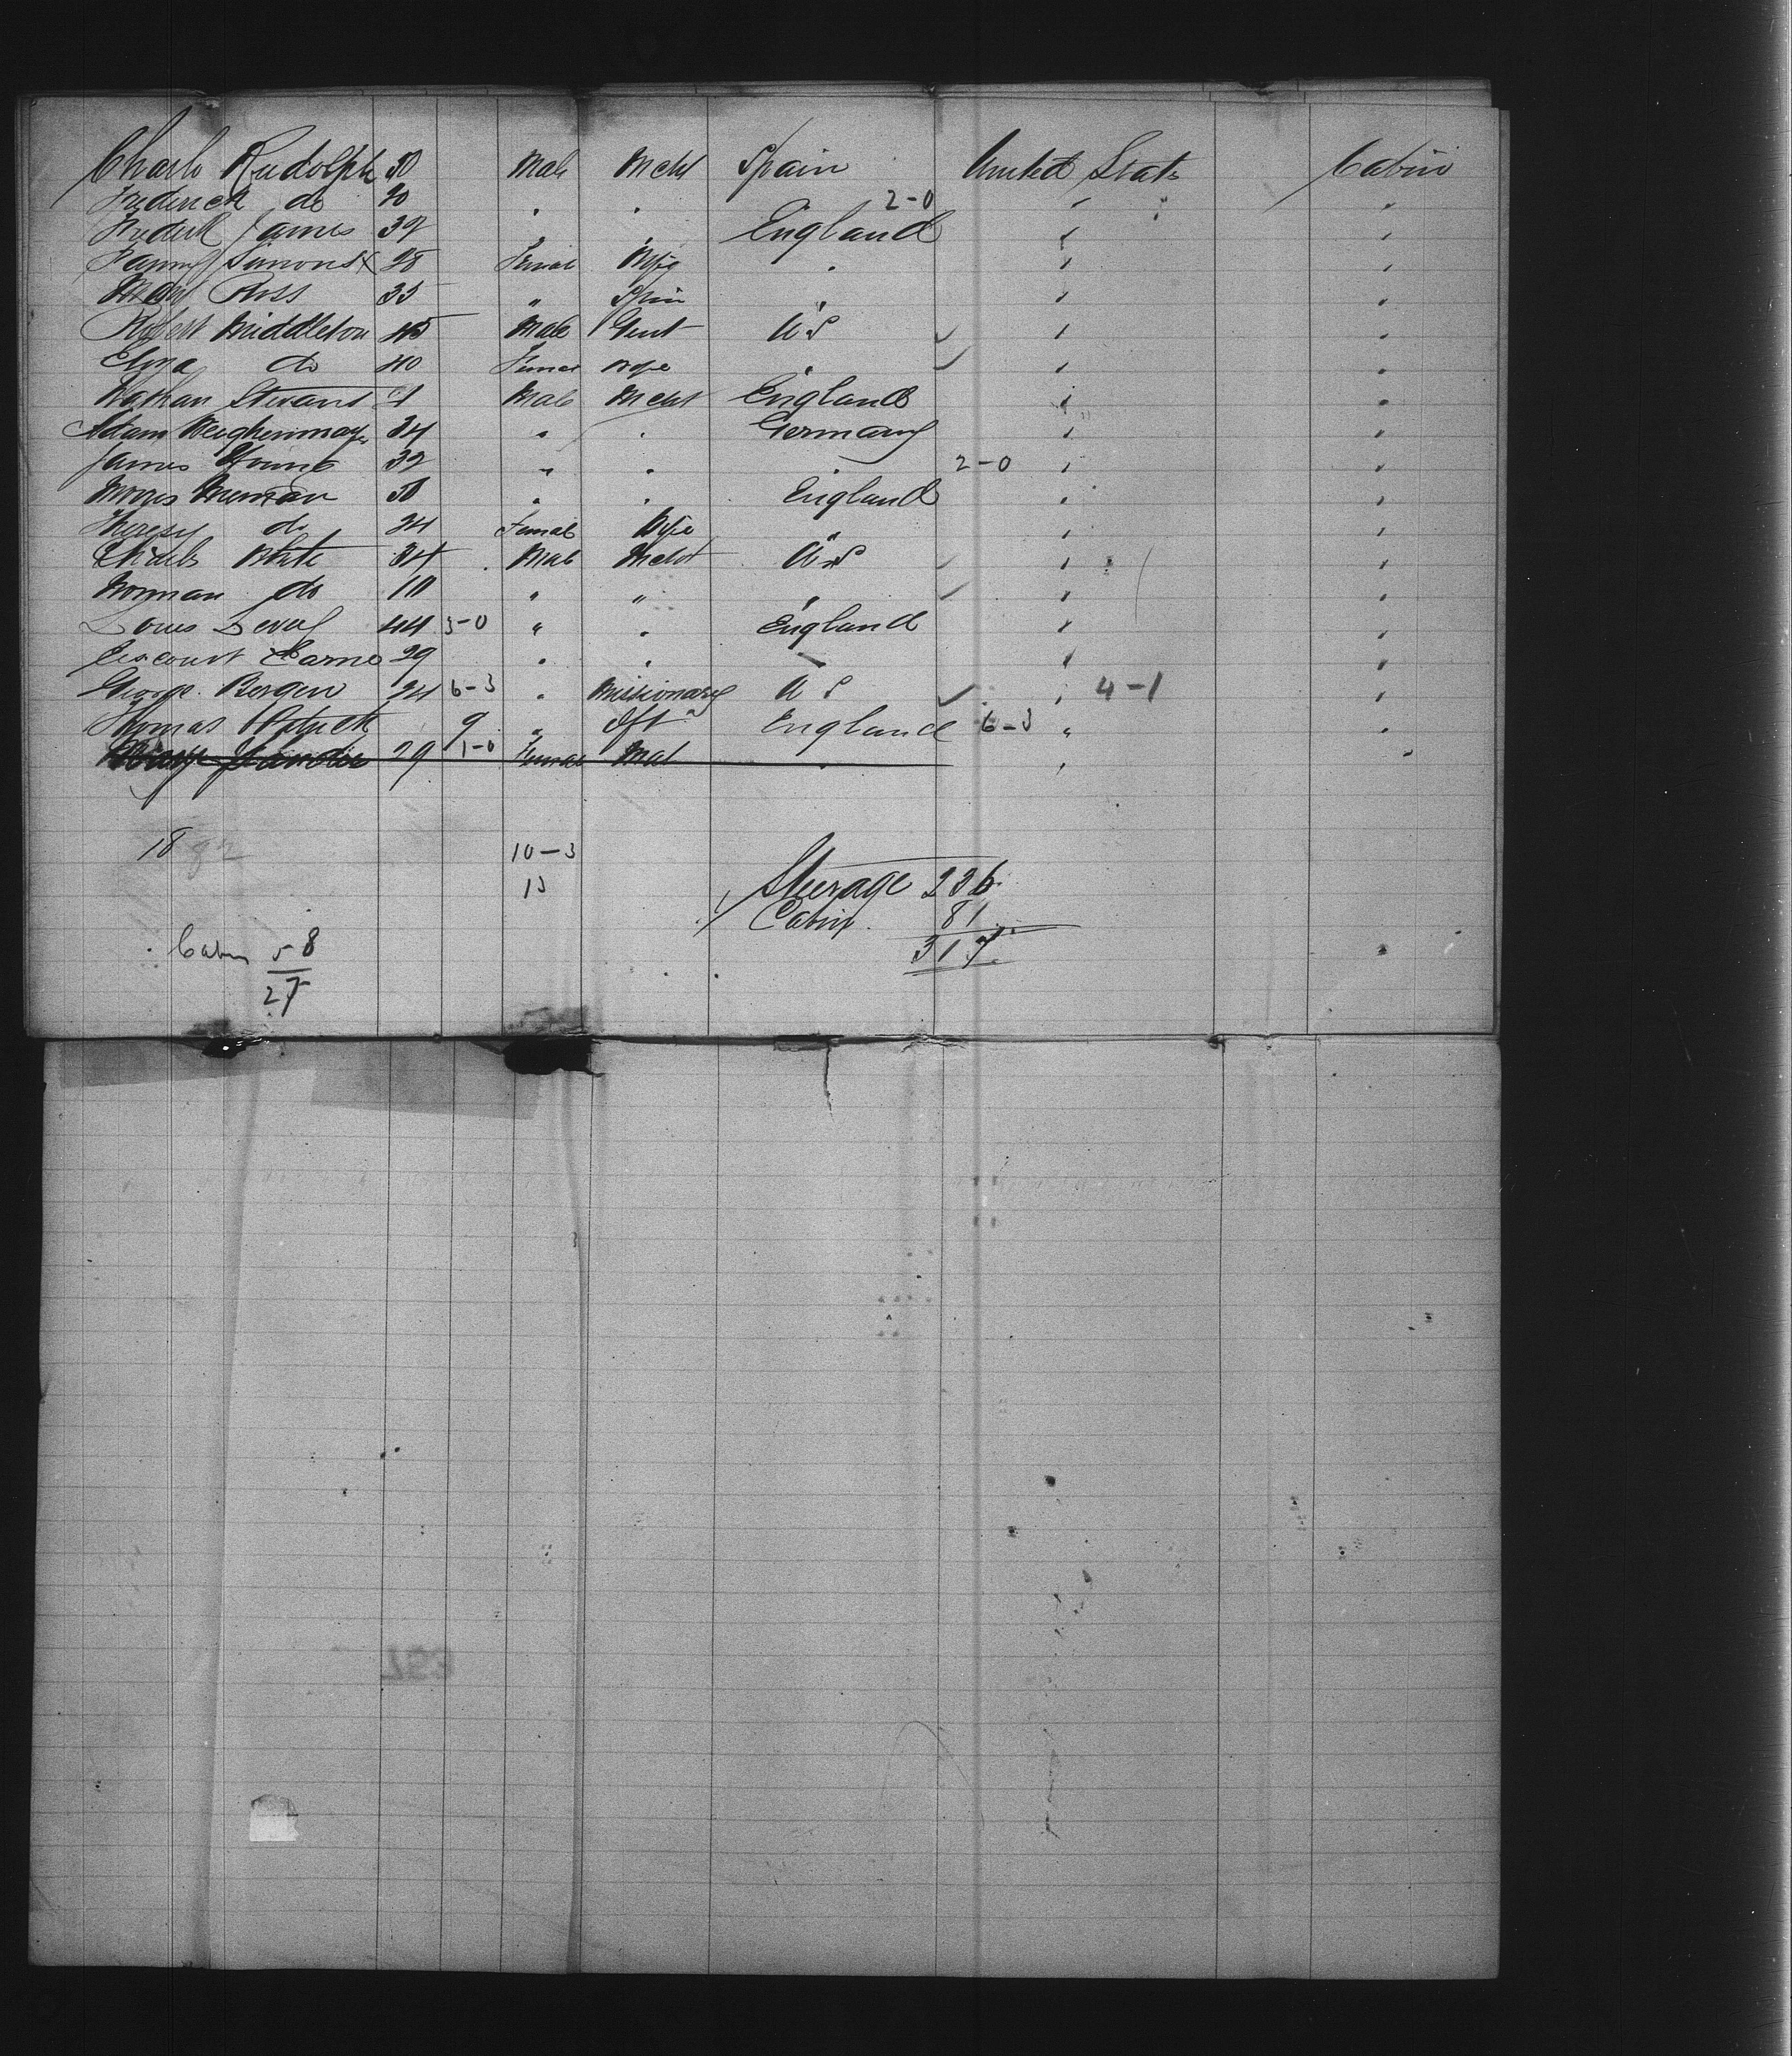 Charls Rudolph 50 Male Mcht Spain United States Cabin
Frederick do 20 " " 2-0 " "
Frederk James 32 " " England " "
Fanny Simons 28 Female Wife " " "
Mary Ross 35 " Spin " " "
Robert Middleton 45 Male Gent US " "
Eliza do 40 Female Wife " " "
Nathan Stevans Male Mcht England " "
Adam 34 " " Germany " "
James Young 32 " " " 2-0 " "
Morris 50 " " England " "
Theresy do 24 Female Wife " " "
Charls White 34 Male Mcht US " "
Norman do 10 " " " " "
Louis Levey 44 5-0 " " England " "
29 " " " " "
George Bergen 24 6-3 " Missionary US " 4-1 "
Thomas 9 " England 6-3 " "
Mary 29 1-0 Female " " "
18 10-3
13
Steerage 236
Cabin 81
317
Cabin 58
27